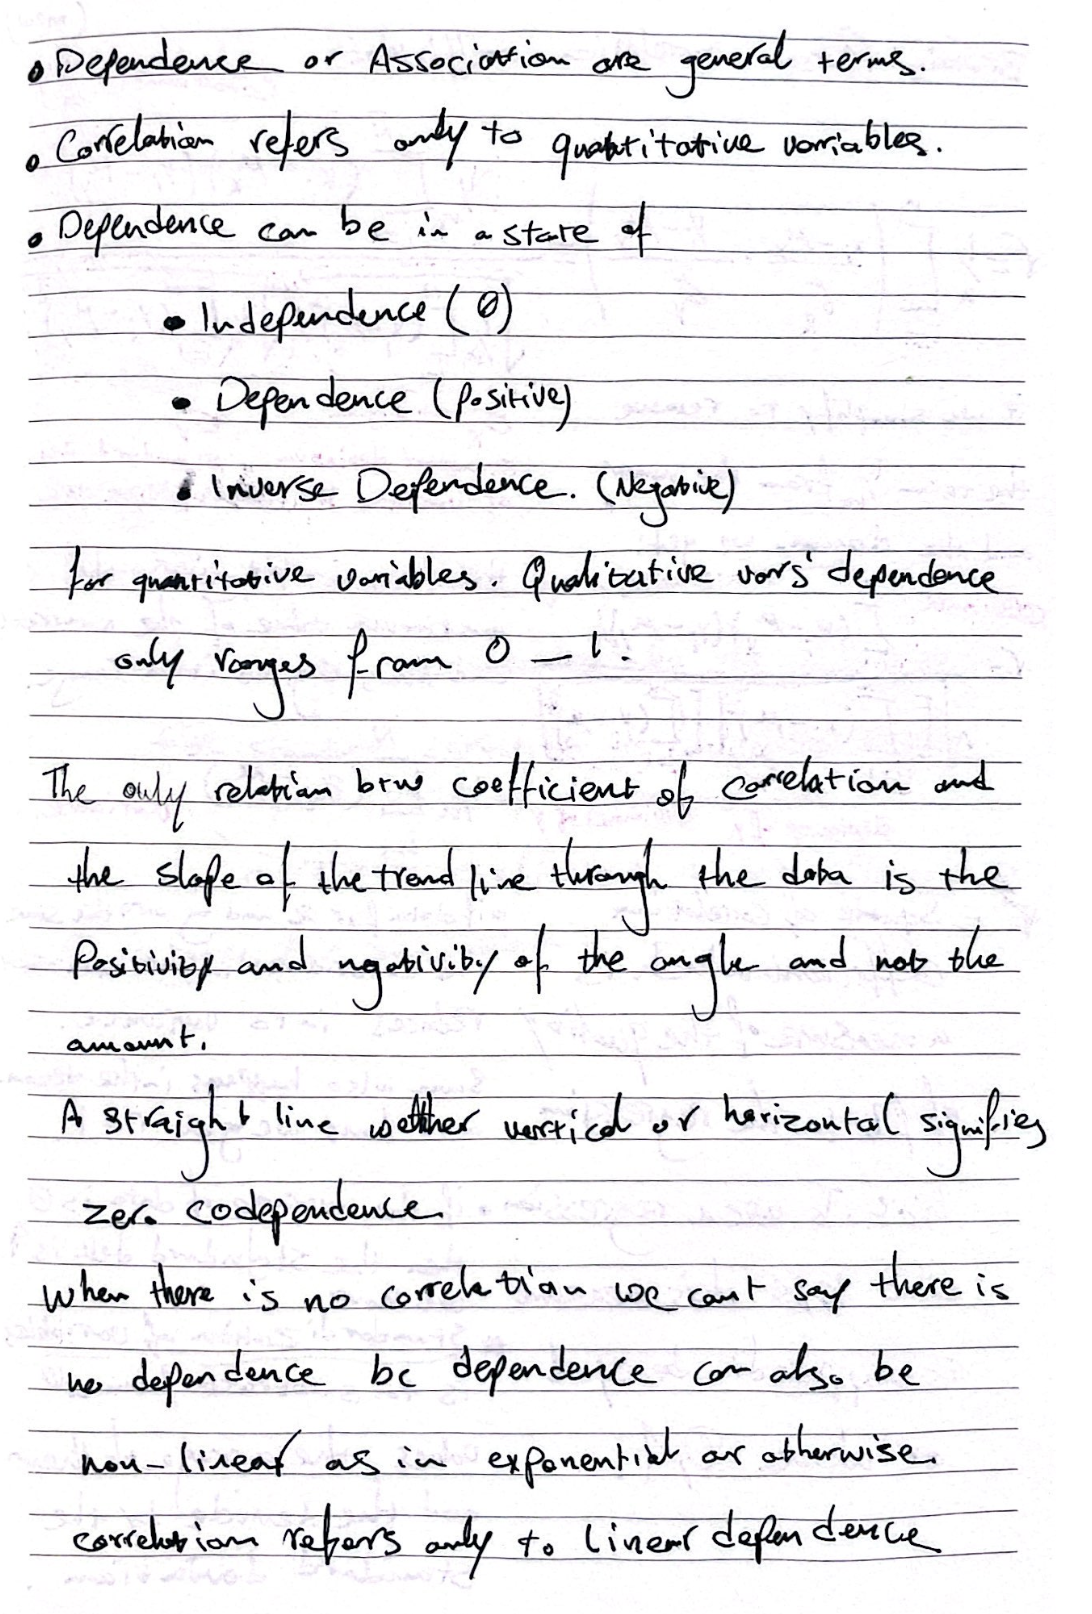 • Dependence or Association are general terms.
• Correlation refers only to quantitative variables.
• Dependence can be in a state of
• Independence (0)
• Dependence (positive)
• Inverse Dependence. (Negative)
for quantitative variables. Qualitative vars' dependence
only ranges from 0 – 1.
The only relation btw coefficient of correlation and
the slope of the trend line through the data is the
positivity and ngativity of the angle and not the
amount.
A straight line wether vertical or horizontal signifies
zero codependence.
When there is no correlation we cant say there is
no dependence bc dependence can also be
non-linear as in exponential or otherwise.
correlation refers only to linear dependence